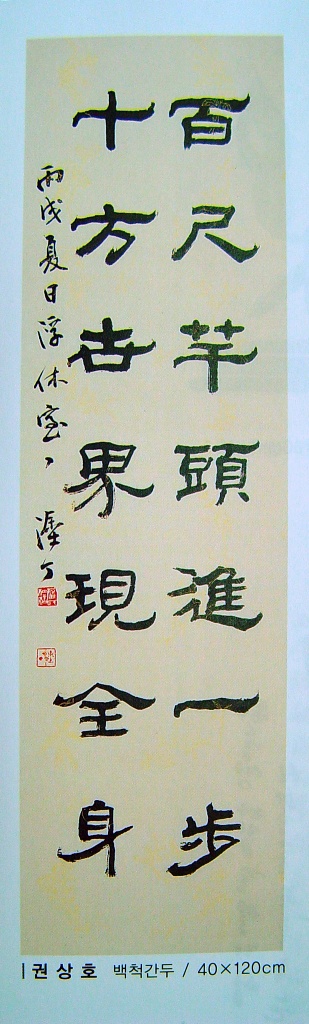 百尺竿頭進一步
十方世界現全身
丙戌夏日浮休室丶
권상호 백척간두 / 40×120cm